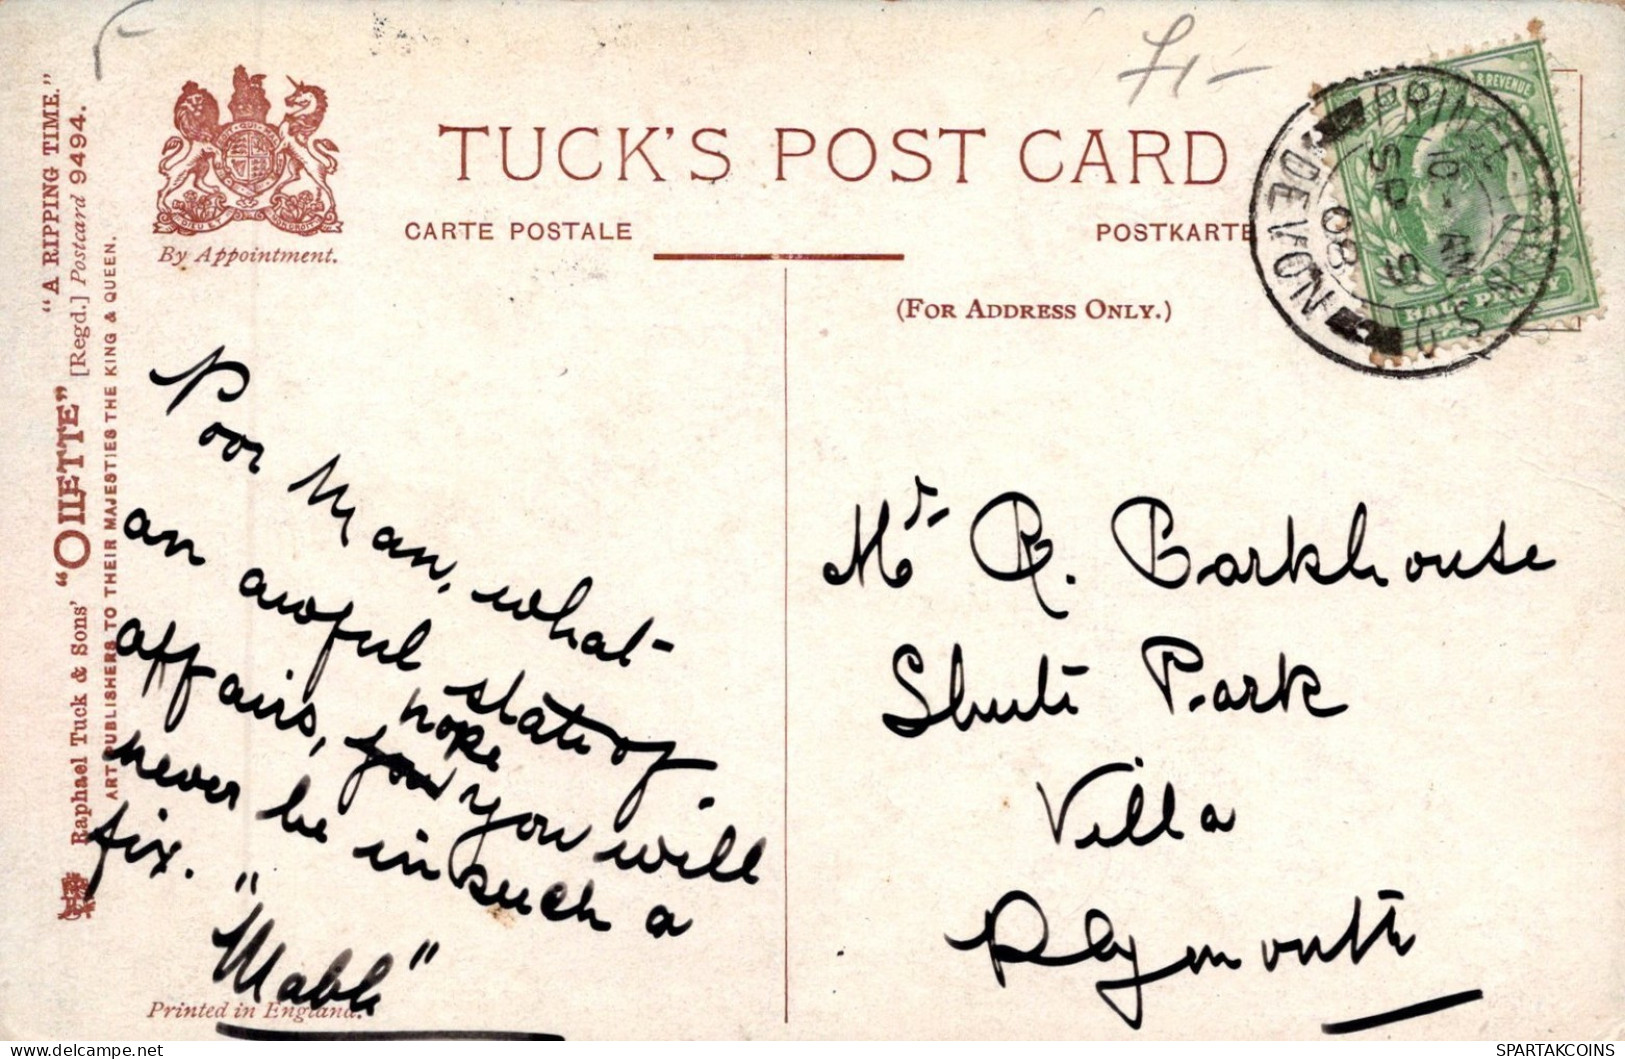 "A RIPPING TIME."
Raphael Tuck & Sons' "OILETTE" [Regd.] Postcard 9494.
ART PUBLISHERS TO THEIR MAJESTIES THE KING & QUEEN.
By Appointment.
TUCK'S POST CARD
CARTE POSTALE
POSTKARTE
(FOR ADDRESS ONLY.)
£1-
& REVENUE
HALFPENNY
PRINCETOWN S.O
10 - AM
SP 5
08
DEVON
Poor Man, what
an awful state of
affairs, hope you will
never be in such a
fix.
"Mabh"
Printed in England.
Mr. R. Barkhouse
Shute Park
Villa
Plymouth
SPARTAKCOINS